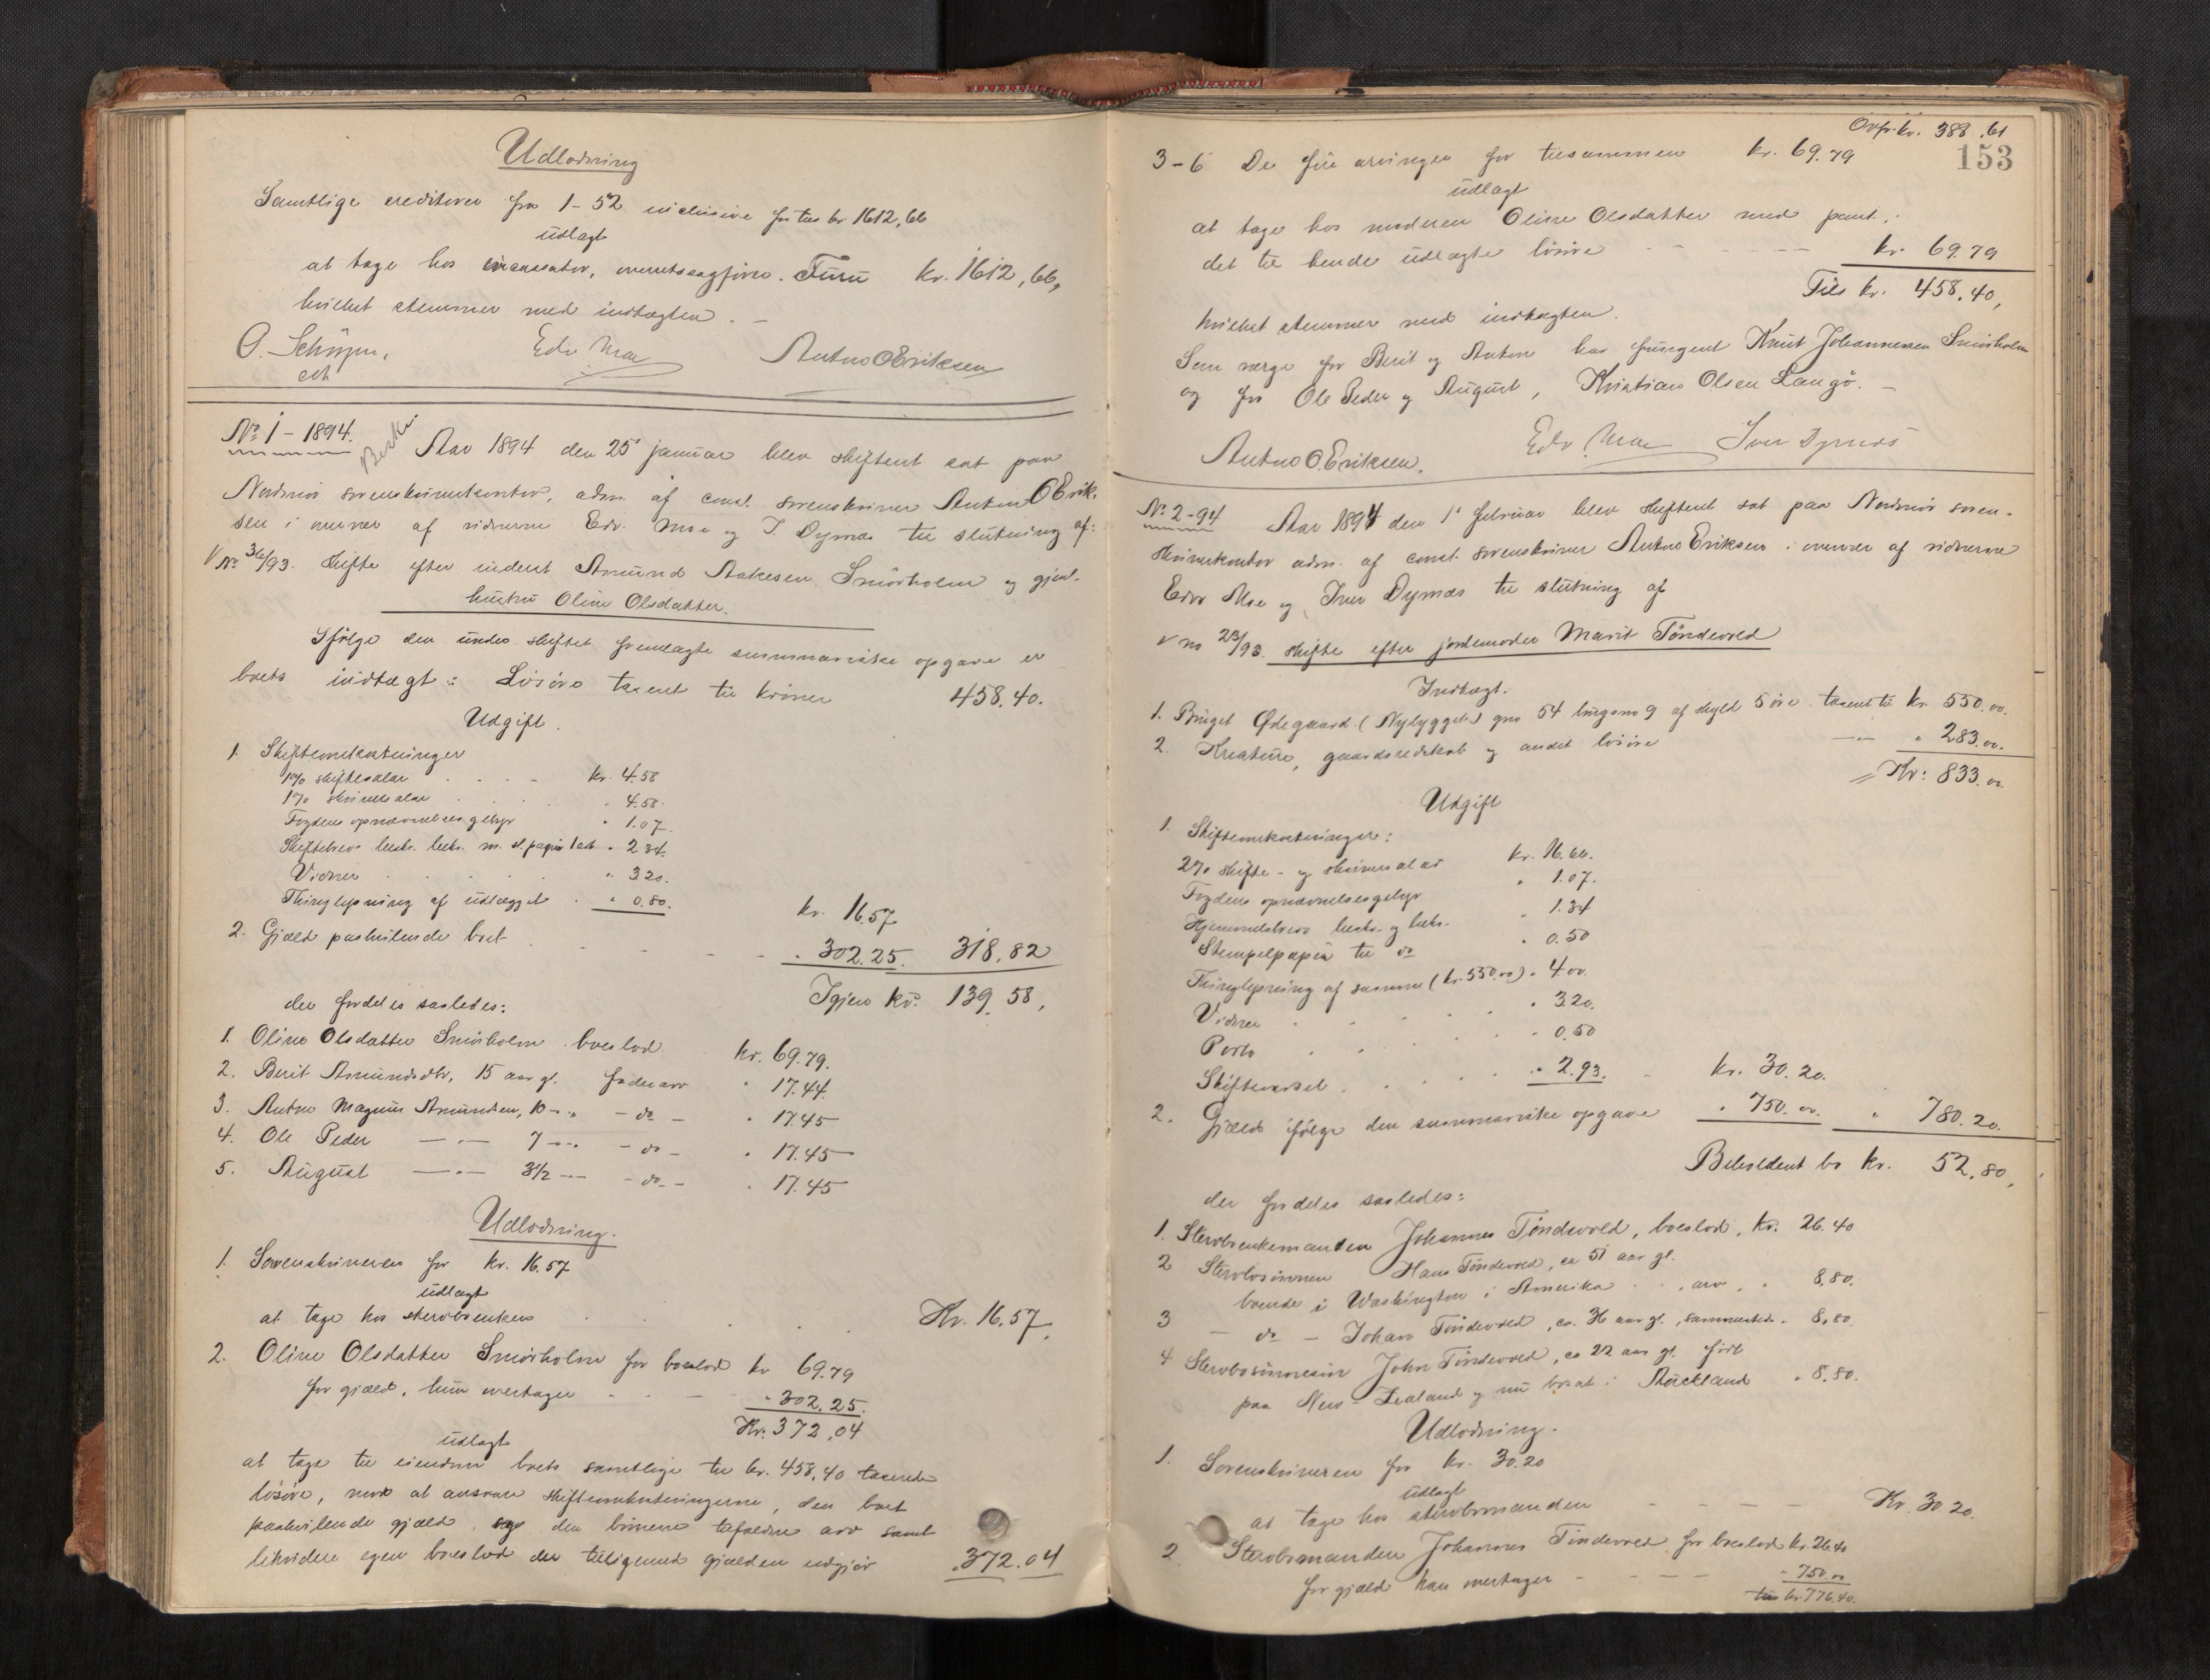 Udlodning
Samtlige creditorer fra 1-52 inclusive for tils kr 1612,66
udlagt
at tage hos incassator, overretssagfører Furu kr. 1612,66,
hvilket stemmer med indtægten. —
O. Schjøren, Edv Moe Anton O Eriksen
eth
No 1 - 1894. Aar 1894 den 25' januar blev skifteret sat paa
Nordmør sorenskriverkontor, adm. af const. sorenskriver Anton O Erik-
sen i nærvær af vidnerne Edv. Moe og I. Dyrnæs til slutning af:
V No 36/93. Skifte efter inderst Amund Aakesen Smörholm og gjenl.
hustru Oline Olsdatter.
Ifølge den under skiftet fremlagte summariske opgave er
boets indtægt: Løsøre taxeret til kroner 458.40.
Udgift.
1. Skifteomkostninger
1% skiftesalær . . . - kr. 4.58
1% skriversalær . . . " 4.58.
Fogdens opnævnelsesgebyr " 1.07.
Skiftebrevs beskr. bekr. m. st. papir 1 ark " 2.34.
Vidner . . . . " 3.20.
Thinglysning af udlægget . " 0.80. kr. 16.57
2. Gjæld paahvilende boet . - - - " 302.25. 318,82
Igjen kr. 139.58,
der fordeles saaledes:
1. Oline Olsdatter Smörholm . boeslod kr. 69.79.
2. Berit Amundsdtr, 15 aar gl. fædrearv " 17.44.
3. Anton Magnus Amundsen, 10 - " - do - " 17.45
4. Ole Peder — " — 7 - " - do - " 17.45
5. August — " — 3½ - " - do - " 17.45
Udlodning.
1. Sorenskriveren for kr. 16.57
udlagt
at tage hos sterbøenken . . . . Kr. 16.57.
2. Oline Olsdatter Smörholm for boeslod kr 69.79
for gjæld, hun overtager - - - " 302.25.
Kr. 372,04
udlagt
at tage til eiendom boets samtlige til kr. 458,40 taxerede
løsøre, mod at ansvare skifteomkostningerne, den boet
paahvilende gjæld, den børnene tilfaldne arv samt
likvidere egen boeslod der tilligemed gjælden udgjør " 372.04
Ovfr. kr. 388.61
153
3-6 De fire arvinger for tilsammen kr. 69.79
udlagt
at tage hos moderen Oline Olsdatter med pant i
det til hende udlagte løsøre - - - - kr. 69.79
Tils kr. 458.40,
hvilket stemmer med indtægten.
Som værge for Berit og Anton har fungeret Knut Johannessen Smörholm
og for Ole Peder og August, Kristian Olsen Langø. —
Anton O. Eriksen. Edv Moe Iver Dyrnæs
No 2-94 Aar 1894 den 1' februar blev skifteret sat paa Nordmør soren-
skriverkontor adm. af const. sorenskriver Anton Eriksen i overvær af vidnerne
Edv Moe og Iver Dyrnæs til slutning af
V no 23/93. Skifte efter jordemoder Marit Töndevold
Indtægt.
1. Bruget Ødegaard (Nybygget) gno 54 brugsno 9 af skyld 5 øre taxeret til kr. 550.00.
2. Kreature, gaardsredskab og andet løsøre — " — " 283.00.
= Kr. 833.00.
Udgift
1. Skifteomkostninger:
2% skifte- og skriversalær kr. 16.66.
Fogdens opnævnelsesgebyr " 1.07.
Hjemmelsbrevs beskr. og bekr. " 1.34
Stempelpapir til do " 0.50
Thinglysning af samme (kr. 550.00) " 4.00.
Vidner . . . . " 3.20.
Porto . . . . " 0.50
Skiftevarsel . . . . " 2.93. - kr. 30.20.
2. Gjæld ifølge den summariske opgave " 750.00. " 780.20.
Beholdent bo kr. 52.80,
der fordeles saaledes:
1. Sterboenkemanden Johannes Töndevold, boeslod, kr. 26.40
2 Sterbosönnen Hans Töndevold, ca 51 aar gl.
boende i Washington i Amerika . . , arv, " 8.80.
3 - do - Johan Töndevold, ca. 36 aar gl., sammesteds " 8.80.
4 Sterbosönnesön John Töndevold, ca 22 aar gl. født
paa New-Zealand og nu bosat i Auckland " 8.80.
Udlodning.
1. Sorenskriveren for kr. 30.20
udlagt
at tage hos sterbomanden - - - - Kr. 30.20.
2. Sterbomanden Johannes Töndevold for boeslod kr. 26.40
for gjæld han overtager - - - - " 750.00
tils kr. 776.40.